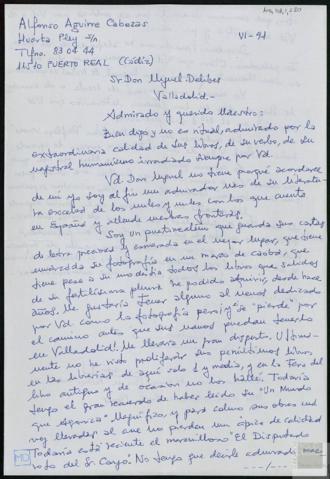 Alfonso Aguirre Cabezas
Huerta Pley s/n
Tlfno. 83 04 44
11510 PUERTO REAL (Cádiz)
VI-91
Sr. Don Miguel Delibes
Valladolid.-
Admirado y querido Maestro:
Bien digo y no es ritual, admirado por la
extraordinaria calidad de sus libros, de su verbo, de su
magistral humanismo irradiado siempre por Vd.
Vd. Don Miguel no tiene porqué acordarse
de mí yo soy al fin un admirador más de su literatu-
ra excelsa de los miles y miles con los que cuenta
en España y allende nuestras fronteras.
Soy un puntirrealeño que guarda sus cartas
de letra preciosa y esmerada en el mejor lugar, que tiene
enmarcada su fotografía en un marco de caoba, que
tiene pese a su modestia todos los libros que salidos
de su fertilísima pluma he podido adquirir, desde hace
años. Me gustaría tener alguno al menos dedicado
por Vd. como la fotografía pero y si se "pierde" por
el camino antes que sus manos puedan tenerlo
en Valladolid?. Me llevaría un gran disgusto. Ultima-
mente no he visto proliferar sus penúltimos libros
en las librerías de aquí solo 1 y medio, y en la Feria del
libro antiguo y de ocasión no los hallé. Todavía
tengo el gran recuerdo de haber leído su "Un Mundo
que Agoniza" Magnífico, y para colmo sus obras
llevadas al cine no pierden un ápice de calidad
Todavía está reciente el maravilloso "El Disputado
voto del Sr. Cayo". No tengo que decirle admirado
---/---
MD